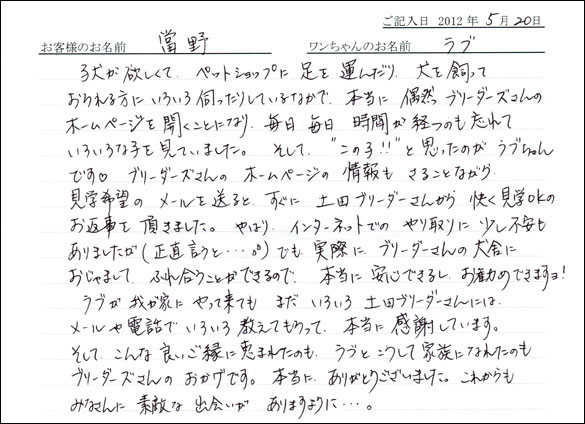 ご記入日 2012年 5月 20日
お客様のお名前 當野 ワンちゃんのお名前 ラブ
子犬が欲しくて、ペットショップに 足を 運んだり、犬を飼って
おられる方に いろいろ 伺ったりしているなかで、本当に 偶然 ブリーダーズさんの
ホームページを 開くことになり、毎日 毎日 時間が 経つのも 忘れて
いろいろな子を 見ていました。 そして、"この子!!"と 思ったのが ラブちゃん
です♡ ブリーダーズさんの ホームページの 情報も さることながら、
見学希望の メールを 送ると、すぐに 土田ブリーダーさんから 快く見学OKの
お返事を 頂きました。 やはり、インターネットでの やり取りに 少し不安も
ありましたが(正直言うと…。。)でも 実際に、ブリーダーさんの 犬舎に
おじゃまして、ふれ合うことができるので、本当に 安心できるし、お勧めできますョ!
ラブが 我が家に やって来ても まだ いろいろ 土田ブリーダーさんには、
メールや電話で いろいろ 教えてもらって、本当に 感謝しています。
そして、こんな 良い ご縁に 恵まれたのも、ラブと こうして 家族になれたのも
ブリーダーズさんの おかげです。 本当に、ありがとうございました。これからも
みなさんに 素敵な 出会いが ありますように…。